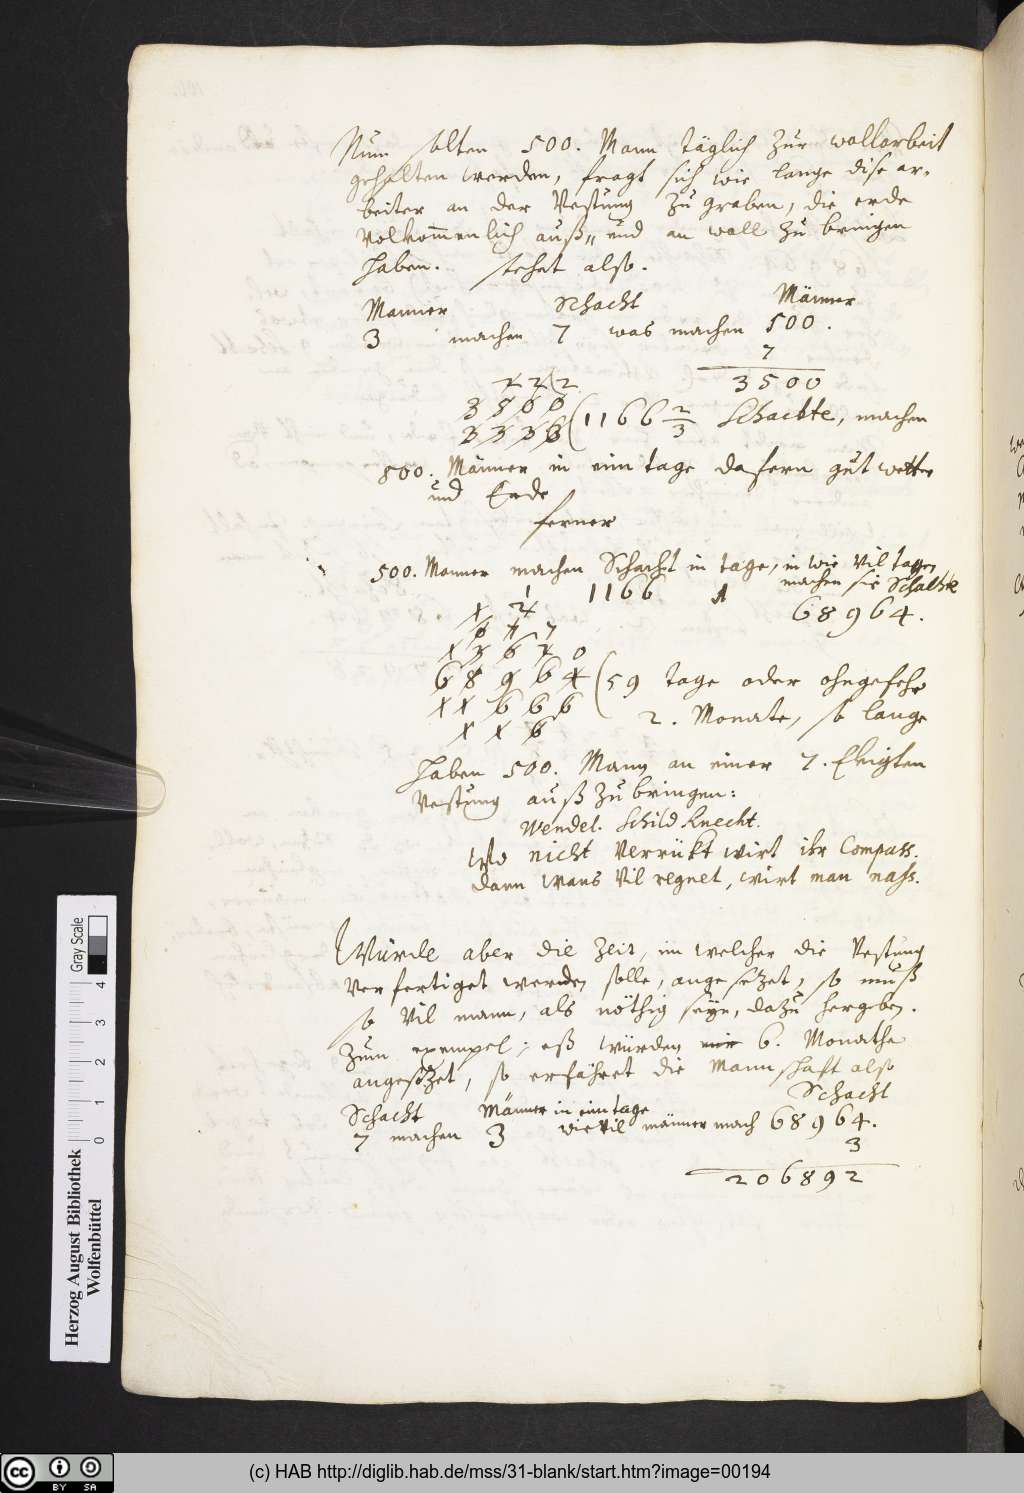 Nun solten 500. Mann täglich zur wallarbeit
gehalten werden, fragt sich wie lange dise ar-
beiter an der Vestung zu graben, die erde
volkommenlich auß„ und an wall zu bringen
haben. stehet also.
Manner Schacht Männer
3 machen 7 was machen 500.
7
3500
1 2 (2
3 5 0 0
3 3 3 3 (1166 2/3 Schachte, machen
500. Männer in ein tage dafern gut wetter
und Erde
ferner
500. Manner machen Schacht in tage, in wie vil tagen
machen sie Schachte
1166 1 68964.
68964 (59 tage oder ohngefehr
1 1 6 6 6 2. Monate, so lange
1 1 6
haben 500. Mann an einer 7. Ekigten
Vestung auß zu bringen:
Wendel. Schild Knecht.
Wo nicht verrükt wirt ihr Compass.
dann wans vil regnet, wirt man nass.
Würde aber die zeit, in welcher die Vestung
verfertiget werden solle, angesetzet, so muß
so vil mann, als nöthig seye, dazu hergeben.
Zum exempel; eß würden 6. Monathe
angesetzet, so erfähret die Mannschaft also
Schacht
Schacht Männer in ein tage
7 machen 3 wie vil männer mach 68964.
3
206892
Herzog August Bibliothek
Wolfenbüttel
Gray Scale
0 1 2 3 4
cc BY SA
(c) HAB http://diglib.hab.de/mss/31-blank/start.htm?image=00194